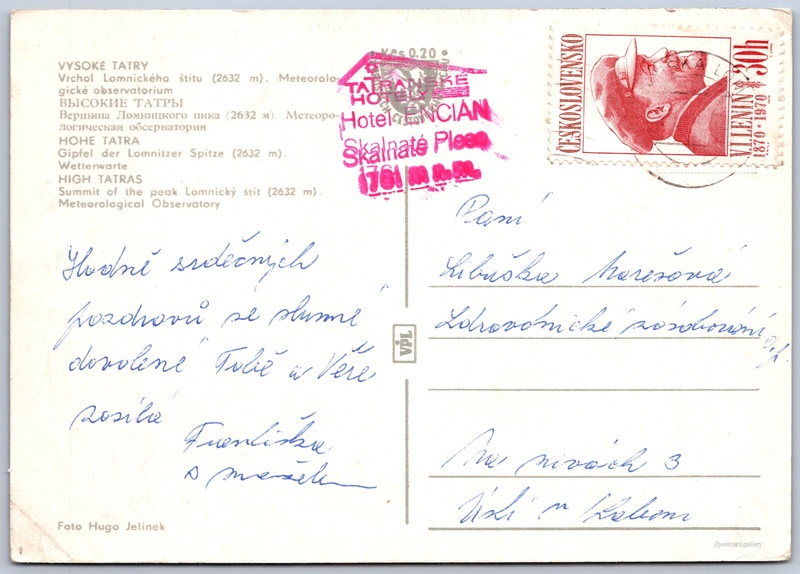 VYSOKÉ TATRY
Vrchol Lomnického štítu (2632 m). Meteorolo-
gické observatorium
ВЫСОКИЕ ТАТРЫ
Вершина Ломницкого пика (2632 м). Метеоро-
логическая обсернатория
HOHE TATRA
Gipfel der Lomnitzer Spitze (2632 m).
Wetterwarte
HIGH TATRAS
Summit of the peak Lomnický štít (2632 m).
Meteorological Observatory
Kčs 0.20
TATRANSKÉ
HOTELY
Hotel ENCIAN
Skalnaté Pleso
1761 m n. m.
ČESKOSLOVENSKO
V.I. LENIN
1870 - 1970
30h
Hodně srdečných
pozdravů ze slunné
dovolené Tobě a Věře
zasílá
Františka
s manželem
VPL
Paní
Libuška Marešová
Zdravotnické zásobování
Na nivách 3
Ústí n Labem
Foto Hugo Jelínek
@postcard.gallery